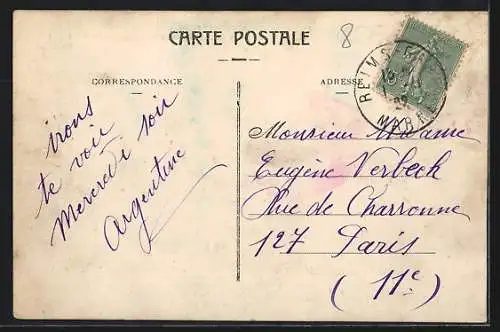 CARTE POSTALE
8
CORRESPONDANCE
ADRESSE
REIMS
MARNE
irons
te voir
Mercredi soir
Argentine
Monsieur Madame
Eugène Verbeck
Rue de Charronne
127 Paris
(11e)